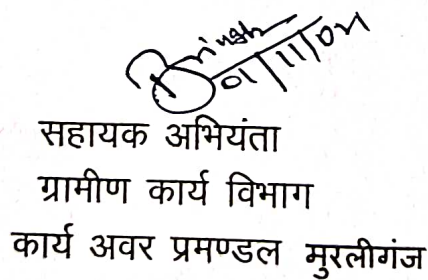 01/11/04
सहायक अभियंता
ग्रामीण कार्य विभाग
कार्य अवर प्रमण्डल मुरलीगंज